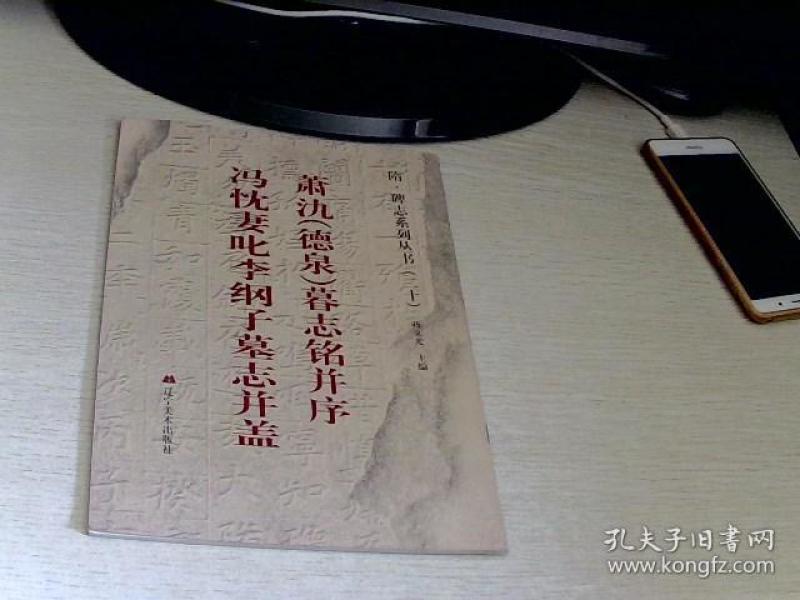 隋·碑志系列丛书(二十)
主编
萧氿(德泉)暮志铭并序
冯忱妻叱李纲子墓志并盖
辽宁美术出版社
孔夫子旧书网
www.kongfz.com